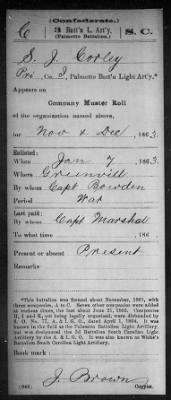 (Confederate.)
C 3 Batt'n L. Art'y. S. C.
(Palmetto Battalion.)
S. J. Corley
Pvt, Co. I, Palmetto Batt'n Light Art'y.*
Appears on
Company Muster Roll
of the organization named above,
for Nov & Dec, 1863.
Enlisted:
When Jan 7, 1863.
Where Greenvill
By whom Capt Bowden
Period War
Last paid:
By whom Capt Marshall
To what time , 186
Present or absent Present
Remarks:
*This battalion was formed about November, 1861, with three
companies, A to C. Seven other companies were added at
various times, but about June 21, 1862, Companies
H, I and K, not being legally organized, were
I.,
known in the field as the Palmetto Battalion Light Artillery,
but was designated the 3d Battalion South Carolina Light
Artillery by the A. & I. G. O. It was also known as White's
Battalion South Carolina Light Artillery.
Book mark:
J. Brown
(642) Copyist.